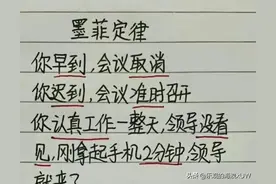 墨菲定律
你早到,会议取消
你迟到,会议准时召开
你认真工作一整天,领导没看
见,刚拿起手机2分钟,领导
就来了